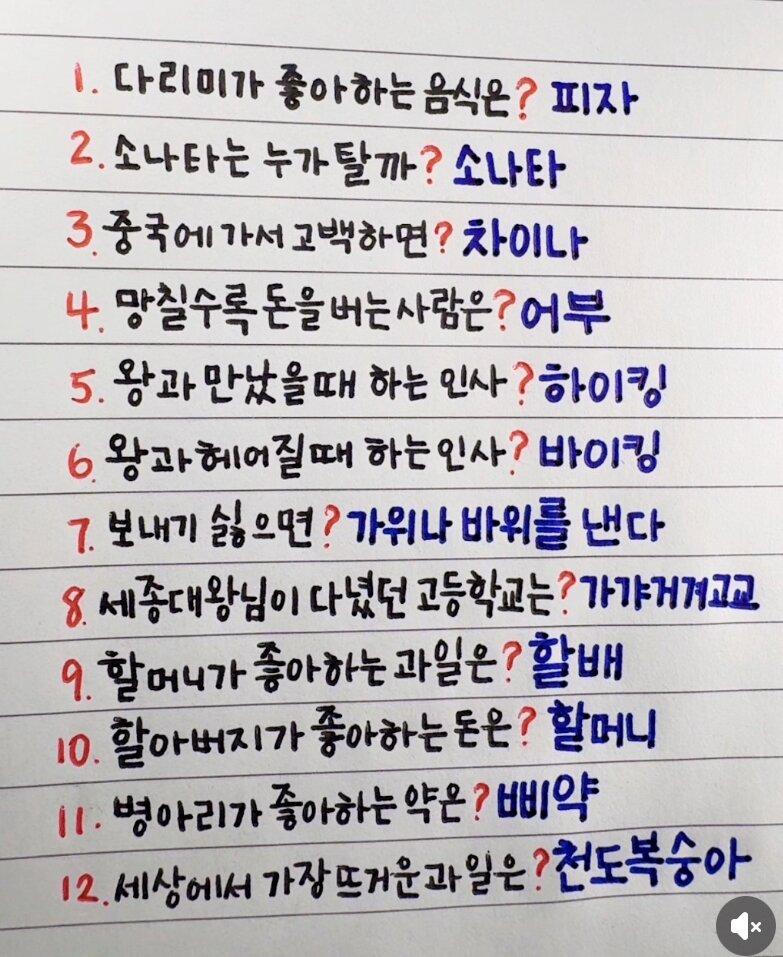 1. 다리미가 좋아하는 음식은? 피자
2. 소나타는 누가 탈까? 소나타
3. 중국에 가서 고백하면? 차이나
4. 망칠수록 돈을 버는 사람은? 어부
5. 왕과 만났을때 하는 인사? 하이킹
6. 왕과 헤어질때 하는 인사? 바이킹
7. 보내기 싫으면? 가위나 바위를 낸다
8. 세종대왕님이 다녔던 고등학교는? 가갸거겨고교
9. 할머니가 좋아하는 과일은? 할배
10. 할아버지가 좋아하는 돈은? 할머니
11. 병아리가 좋아하는 약은? 삐약
12. 세상에서 가장 뜨거운 과일은? 천도복숭아